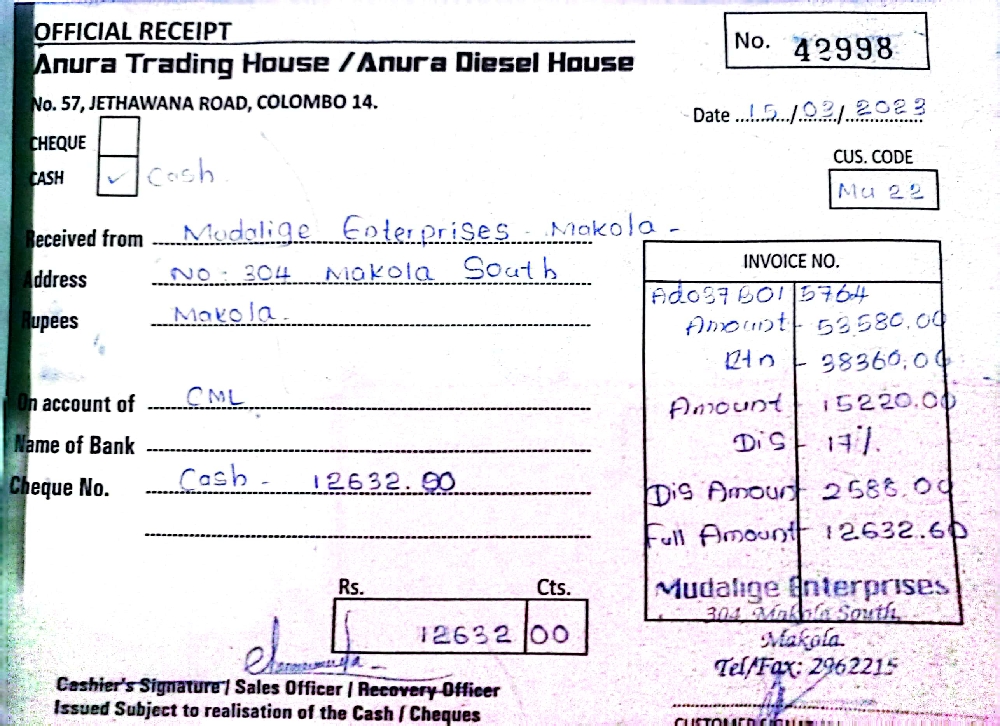 OFFICIAL RECEIPT
Anura Trading House / Anura Diesel House
No. 42998
No. 57, JETHAWANA ROAD, COLOMBO 14.
Date 15/03/2023
CHEQUE
CASH ✓ Cash
CUS. CODE
Mu 22
Received from Mudalige Enterprises - Makola -
Address No: 304 Makola South
Rupees Makola.
On account of CML
Name of Bank
Cheque No. Cash - 12632.00
INVOICE NO.
Ado37B01 5764
Amount - 53580.00
Rtn - 38360.00
Amount - 15220.00
Dis - 17%
Dis Amount - 2588.00
Full Amount - 12632.60
Mudalige Enterprises
304 Makola South,
Makola.
Tel/Fax: 2962215
Rs. Cts.
12632 00
Cashier's Signature / Sales Officer / Recovery Officer
Issued Subject to realisation of the Cash / Cheques
CUSTOMER